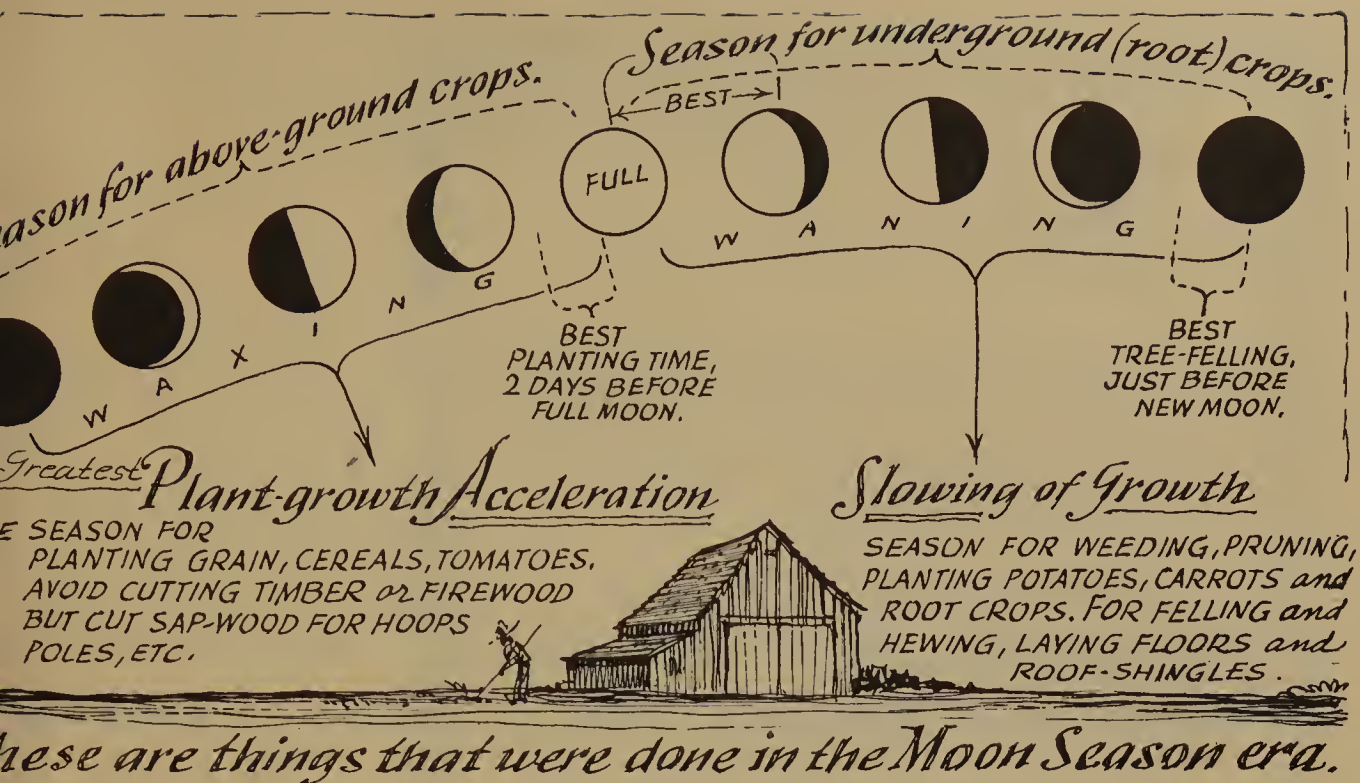 Season for underground (root) crops.
for above-ground crops.
BEST
FULL
WANING
WAXING
BEST
PLANTING TIME,
2 DAYS BEFORE
FULL MOON.
BEST
TREE-FELLING,
JUST BEFORE
NEW MOON.
Greatest Plant-growth Acceleration
SEASON FOR
PLANTING GRAIN, CEREALS, TOMATOES.
AVOID CUTTING TIMBER or FIREWOOD
BUT CUT SAP-WOOD FOR HOOPS
POLES, ETC.
Slowing of Growth
SEASON FOR WEEDING, PRUNING,
PLANTING POTATOES, CARROTS and
ROOT CROPS. FOR FELLING and
HEWING, LAYING FLOORS and
ROOF-SHINGLES.
are things that were done in the Moon Season era.